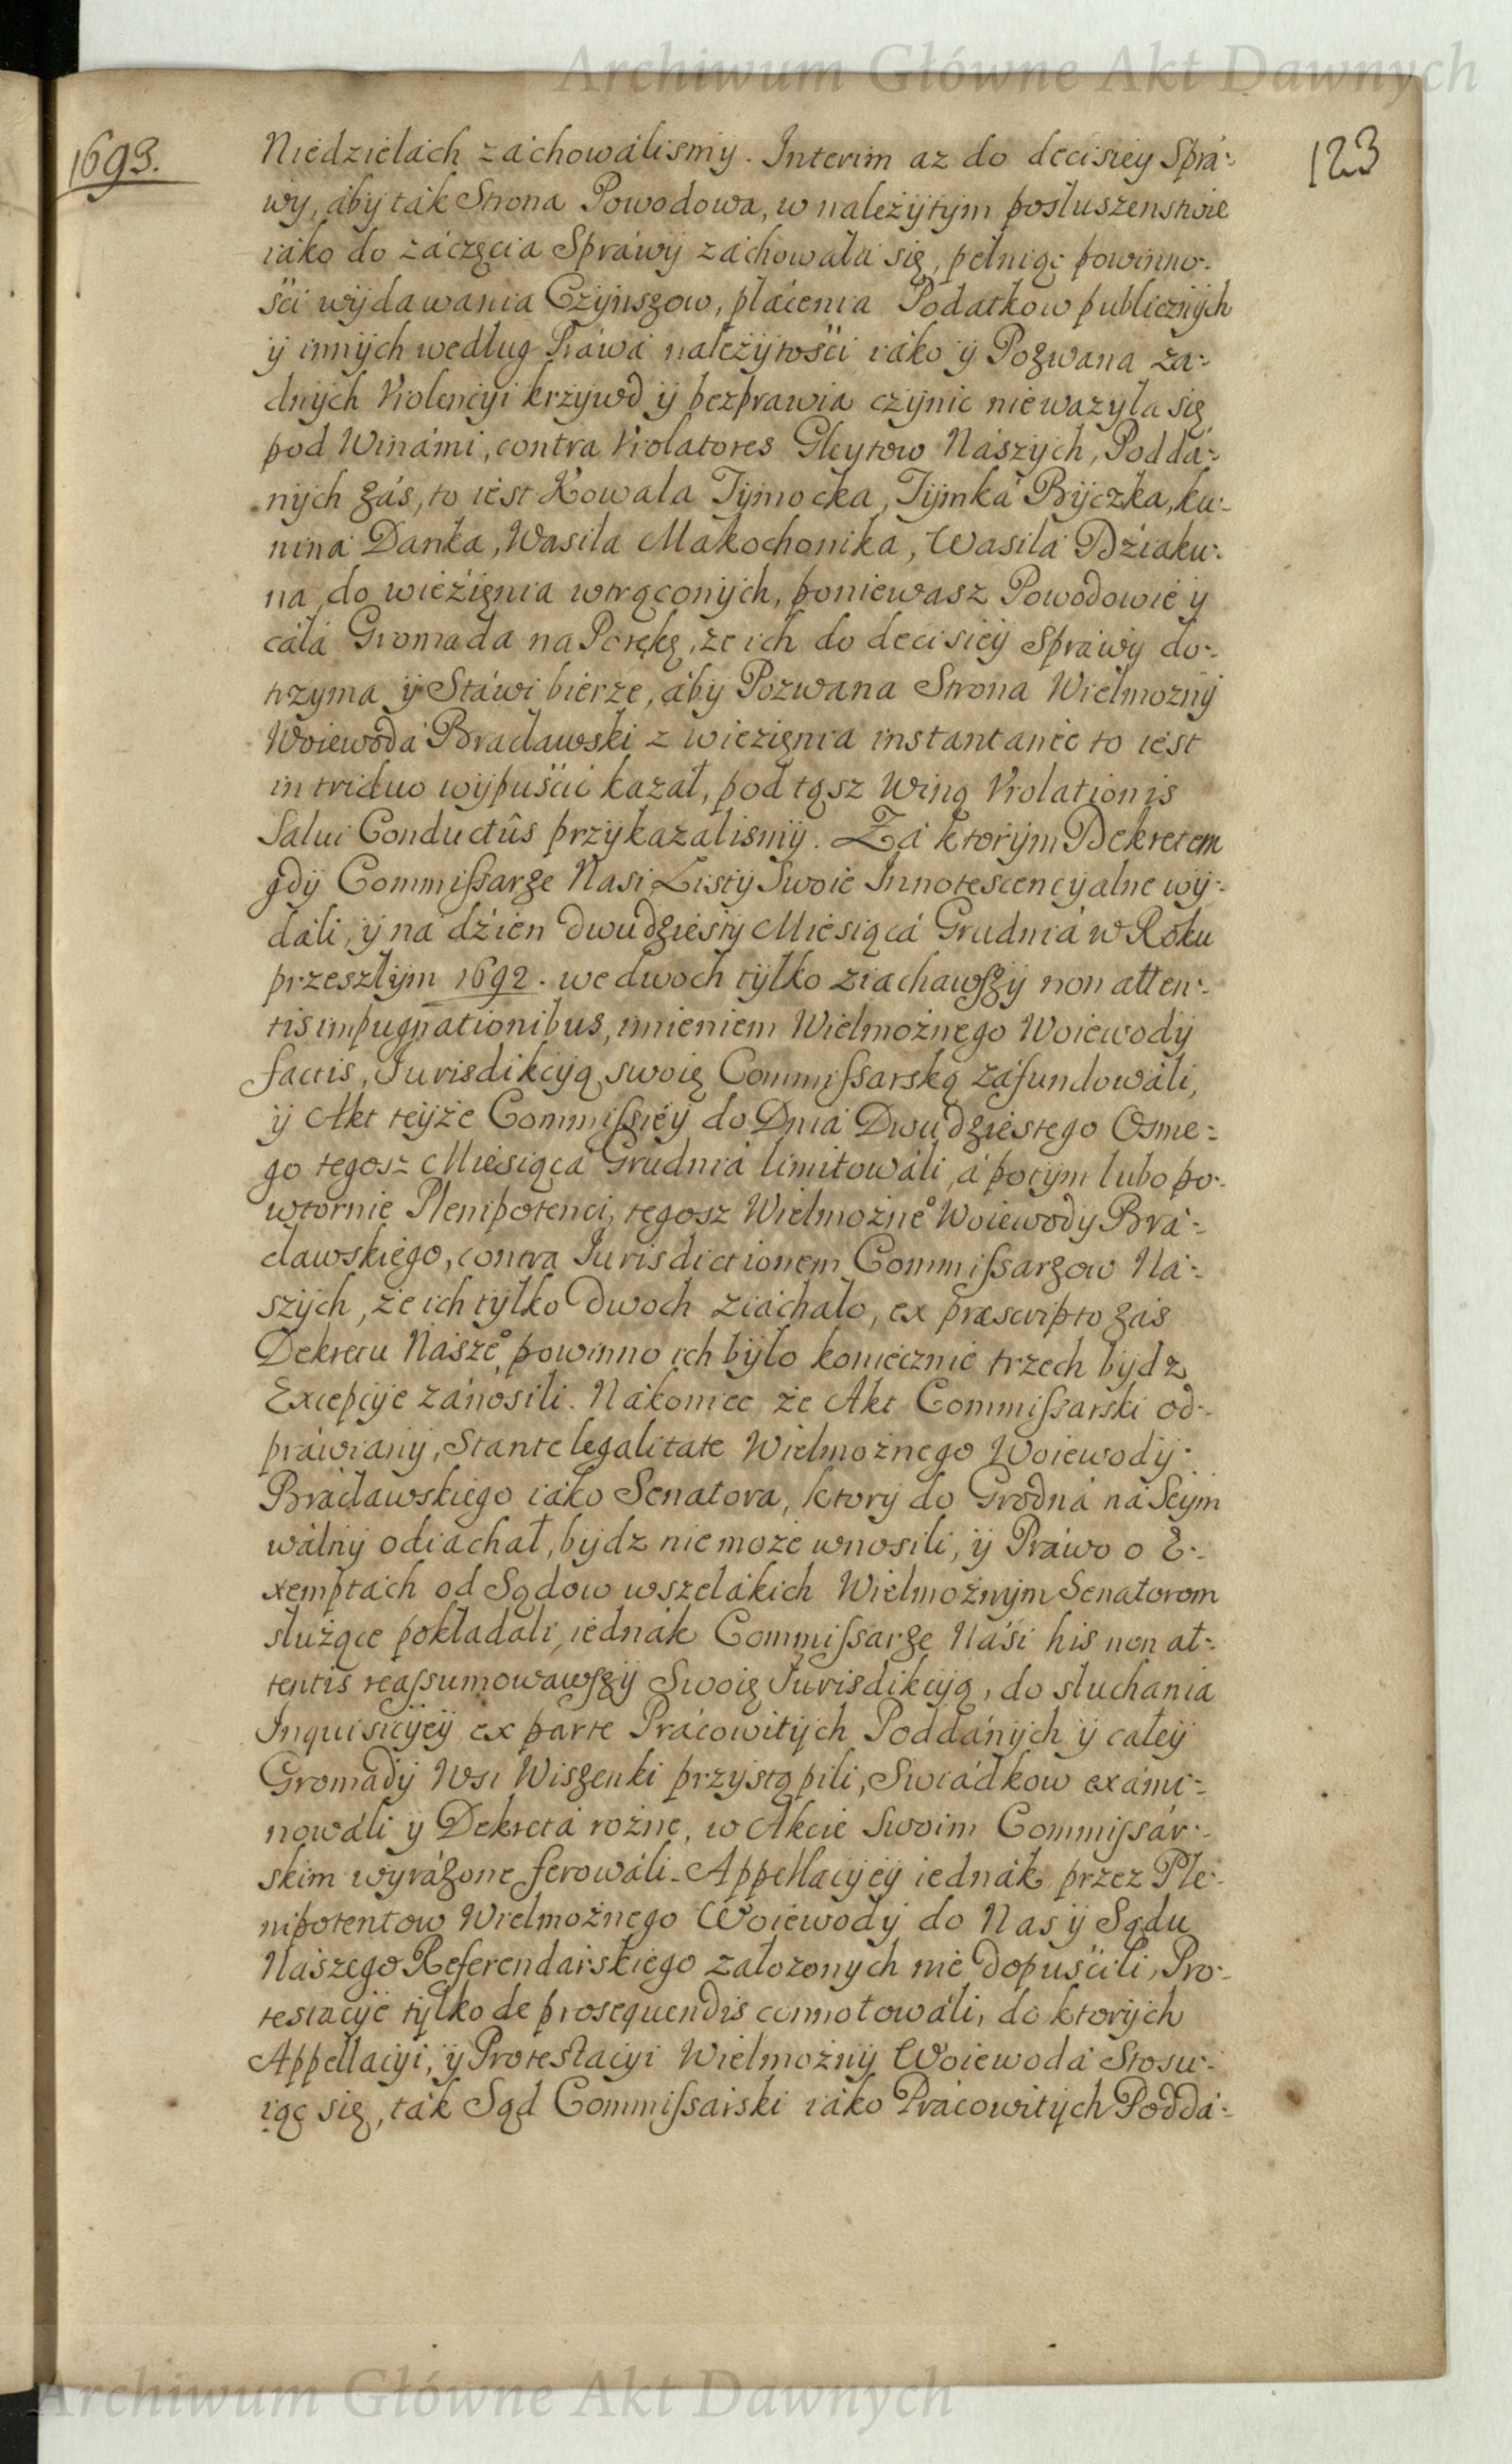 Archiwum Główne Akt Dawnych
1693.
123
Niedzielach zachowálismy. Interim az do decisiey Sprá-
wy, áby ták Strona Powodowa, w należytym posłuszenstwie
iáko do záczęcia Spráwy záchowáłá się, pełniąc powinno-
ści wydawania Czynszow, płácenia Podátkow publicznych
y innych według Práwá należytości iáko y Pozwana za-
dnych Violencyi krzywd y bezprawia czynic nie wazyła się
pod Winámi, contra Violatores Gleytow Nászych, Poddá-
nych zás, to iest Kowala Tymocka, Tymká Byczka, ku-
niná Danka, Wasila Makochonika, Wasilá Dziaku-
na, do wieźięnia wtrąconych, poniewasz Powodowie y
cáłá Gromada na Porękę, że ich do decisiey Spráwy do-
trzyma y Stáwi bierze, áby Pozwana Strona Wielmozny
Woiewodá Bracławski z wiezięnia instantanèe to iest
in triduo wypuśćić kazał, pod tąsz Winą Violationis
Salui Conductûs przykazalismy. Zá ktorym Dekretem
gdy Commissarze Nasi Listy Swoie Innotescencyalne wy-
dáli, y ná dzien dwudziesty Miesiącá Grudniá w Roku
przeszłym 1692. we dwoch tylko ziachawszy non atten-
tis impugnationibus, imieniem Wielmożnego Woiewody
factis, Jurisdikcyą swoię Commissarską záfundowáli,
y Akt teyże Commissiey do Dniá Dwudziestego Osme-
go tegosz Miesiącá Grudniá limitowáli, á potym lubo po-
wtornie Plenipotenci, tegosz Wielmożne° Woiewody Brá-
cławskiego, contra Jurisdictionem Commissarzow Ná-
szych, że ich tylko dwoch ziáchało, ex præscripto zás
Dekretu Násze° powinno ich było koniecznie trzech bydz
Excepcye zánosili. Nákoniec że Akt Commissarski od-
práwiany, Stante legalitate Wielmożnego Woiewody
Brácławskiego iáko Senatora, ktory do Grodná ná Seym
wálny odiachał, bydz nie może wnosili, y Práwo o E-
xemptach od Sądow wszelákich Wielmożnym Senatorom
służące pokładáli, iednák Commissarze Náśi his non at-
tentis reassumowawszy Swoię Jurisdikcyą, do słuchania
Inquisicyey ex parte Prácowitych Poddánych y całey
Gromády Wsi Wiszenki przystąpili, Swiádkow exámi-
nowáli y Dekretá rożne, w Akcie Swoim Commissár-
skim wyráżone ferowáli. Appellacyey iednák przez Ple-
nipotentow Wielmożnego Woiewody do Nas y Sądu
Nászego Referendarskiego założonych nie dopuśćili, Pro-
testacye tylko de prosequendis connotowáli, do ktorych
Appellacyi, y Protestacyi Wielmożny Woiewodá Stosu-
iąc się, ták Sąd Commissarski iáko Prácowitych Poddá-
Archiwum Główne Akt Dawnych